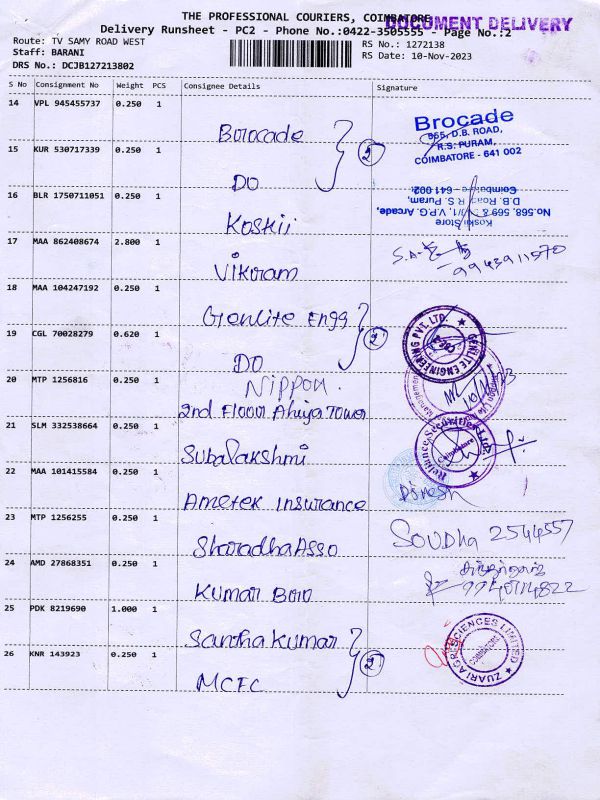 THE PROFESSIONAL COURIERS, COIMBATORE
DOCUMENT DELIVERY
Delivery Runsheet - PC2 - Phone No.:0422-3505555 - Page No.:2
Route: TV SAMY ROAD WEST
RS No.: 1272138
Staff: BARANI
RS Date: 10-Nov-2023
DRS No.: DCJB127213802
S No Consignment No Weight PCS Consignee Details Signature
14 VPL 945455737 0.250 1
Brocade
2
Brocade
555, D.B. ROAD,
R.S. PURAM,
COIMBATORE - 641 002
15 KUR 530717339 0.250 1
DO
16 BLR 1750711051 0.250 1
Koskii
Koskii Store
No.568, 569 & 1/1, V.P.G. Arcade,
D.B. Road, R.S. Puram,
Coimbatore - 641 002.
17 MAA 862408674 2.800 1
Vikoram
9943911570
18 MAA 104247192 0.250 1
Genlite Engg
2
GENLITE ENGINEERING PVT. LTD.
19 CGL 70028279 0.620 1
DO
20 MTP 1256816 0.250 1
Nippon.
2nd Floor Ahuja Tower
21 SLM 332538664 0.250 1
Subalakshmi
Reliance Securities Ltd
Coimbatore
22 MAA 101415584 0.250 1
Ametek Insurance
Dinesh
23 MTP 1256255 0.250 1
Sharadha Asso
SOUDha 2544557
24 AMD 27868351 0.250 1
Kumar Bro
25 PDK 8219690 1.000 1
Santha Kumar
2
ZUARI AGRI SCIENCES LIMITED
COIMBATORE
26 KNR 143923 0.250 1
MCFC